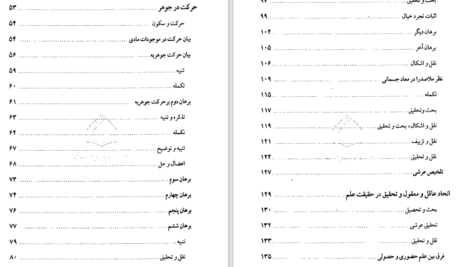 حرکت در جوهر ۵۳
حرکت و سکون ۵۴
بیان حرکت در موجودات مادی ۵۴
بیان حرکت جوهریه ۵۶
تنبیه ۵۹
تکمله ۶۰
برهان دوم بر حرکت جوهریه ۶۱
تذکره و تنبیه ۶۳
تکمله ۶۴
تنبیه و توضیح ۶۷
اعضال و حل ۶۸
برهان سوم ۷۳
برهان چهارم ۷۴
برهان پنجم ۷۶
برهان ششم ۷۷
تنبیه ۷۹
نقل و تحقیق ۸۰
بحث و تحقیق ۹۶
اثبات تجرد خیال ۹۹
برهان دیگر ۱۰۴
برهان آخر ۱۰۵
نقل و اشکال ۱۰۶
نظر ملاصدرا در معاد جسمانی ۱۰۹
تکمله ۱۱۵
بحث و تحقیق ۱۱۷
نقل و اشکال، بحث و تحقیق ۱۱۹
نقل و تزییف ۱۲۱
نقل و تحقیق ۱۲۴
تلخیص عرشی ۱۲۷
اتحاد عاقل و معقول و تحقیق در حقیقت علم ۱۲۹
بحث و تحصیل ۱۳۰
تحقیق عرشی ۱۳۲
نقل و تحقیق ۱۳۳
فرق بین علم حضوری و حصولی ۱۳۵